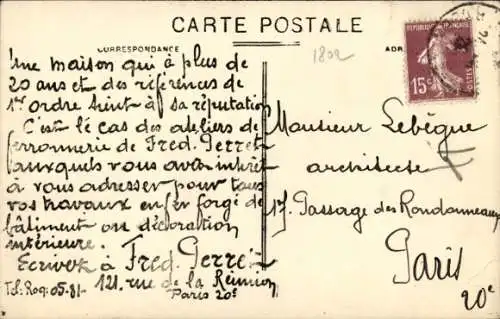 CARTE POSTALE
CORRESPONDANCE
ADR
1802
RÉPUBLIQUE FRANÇAISE
15c
POSTES
Une maison qui a plus de
20 ans et des références de
1er ordre tient à sa réputation
C'est le cas des ateliers de
ferronnerie de Fred. Perret
auxquels vous avez intérêt
à vous adresser pour tous
vos travaux en fer forgé de
bâtiment ou décoration
intérieure.
Ecrivez à Fred. Perret
121, rue de la Réunion
Tel: Roq: 05-81- Paris 20e
Monsieur Lebègue
architecte
17. Passage des Rondonneaux
Paris
20e